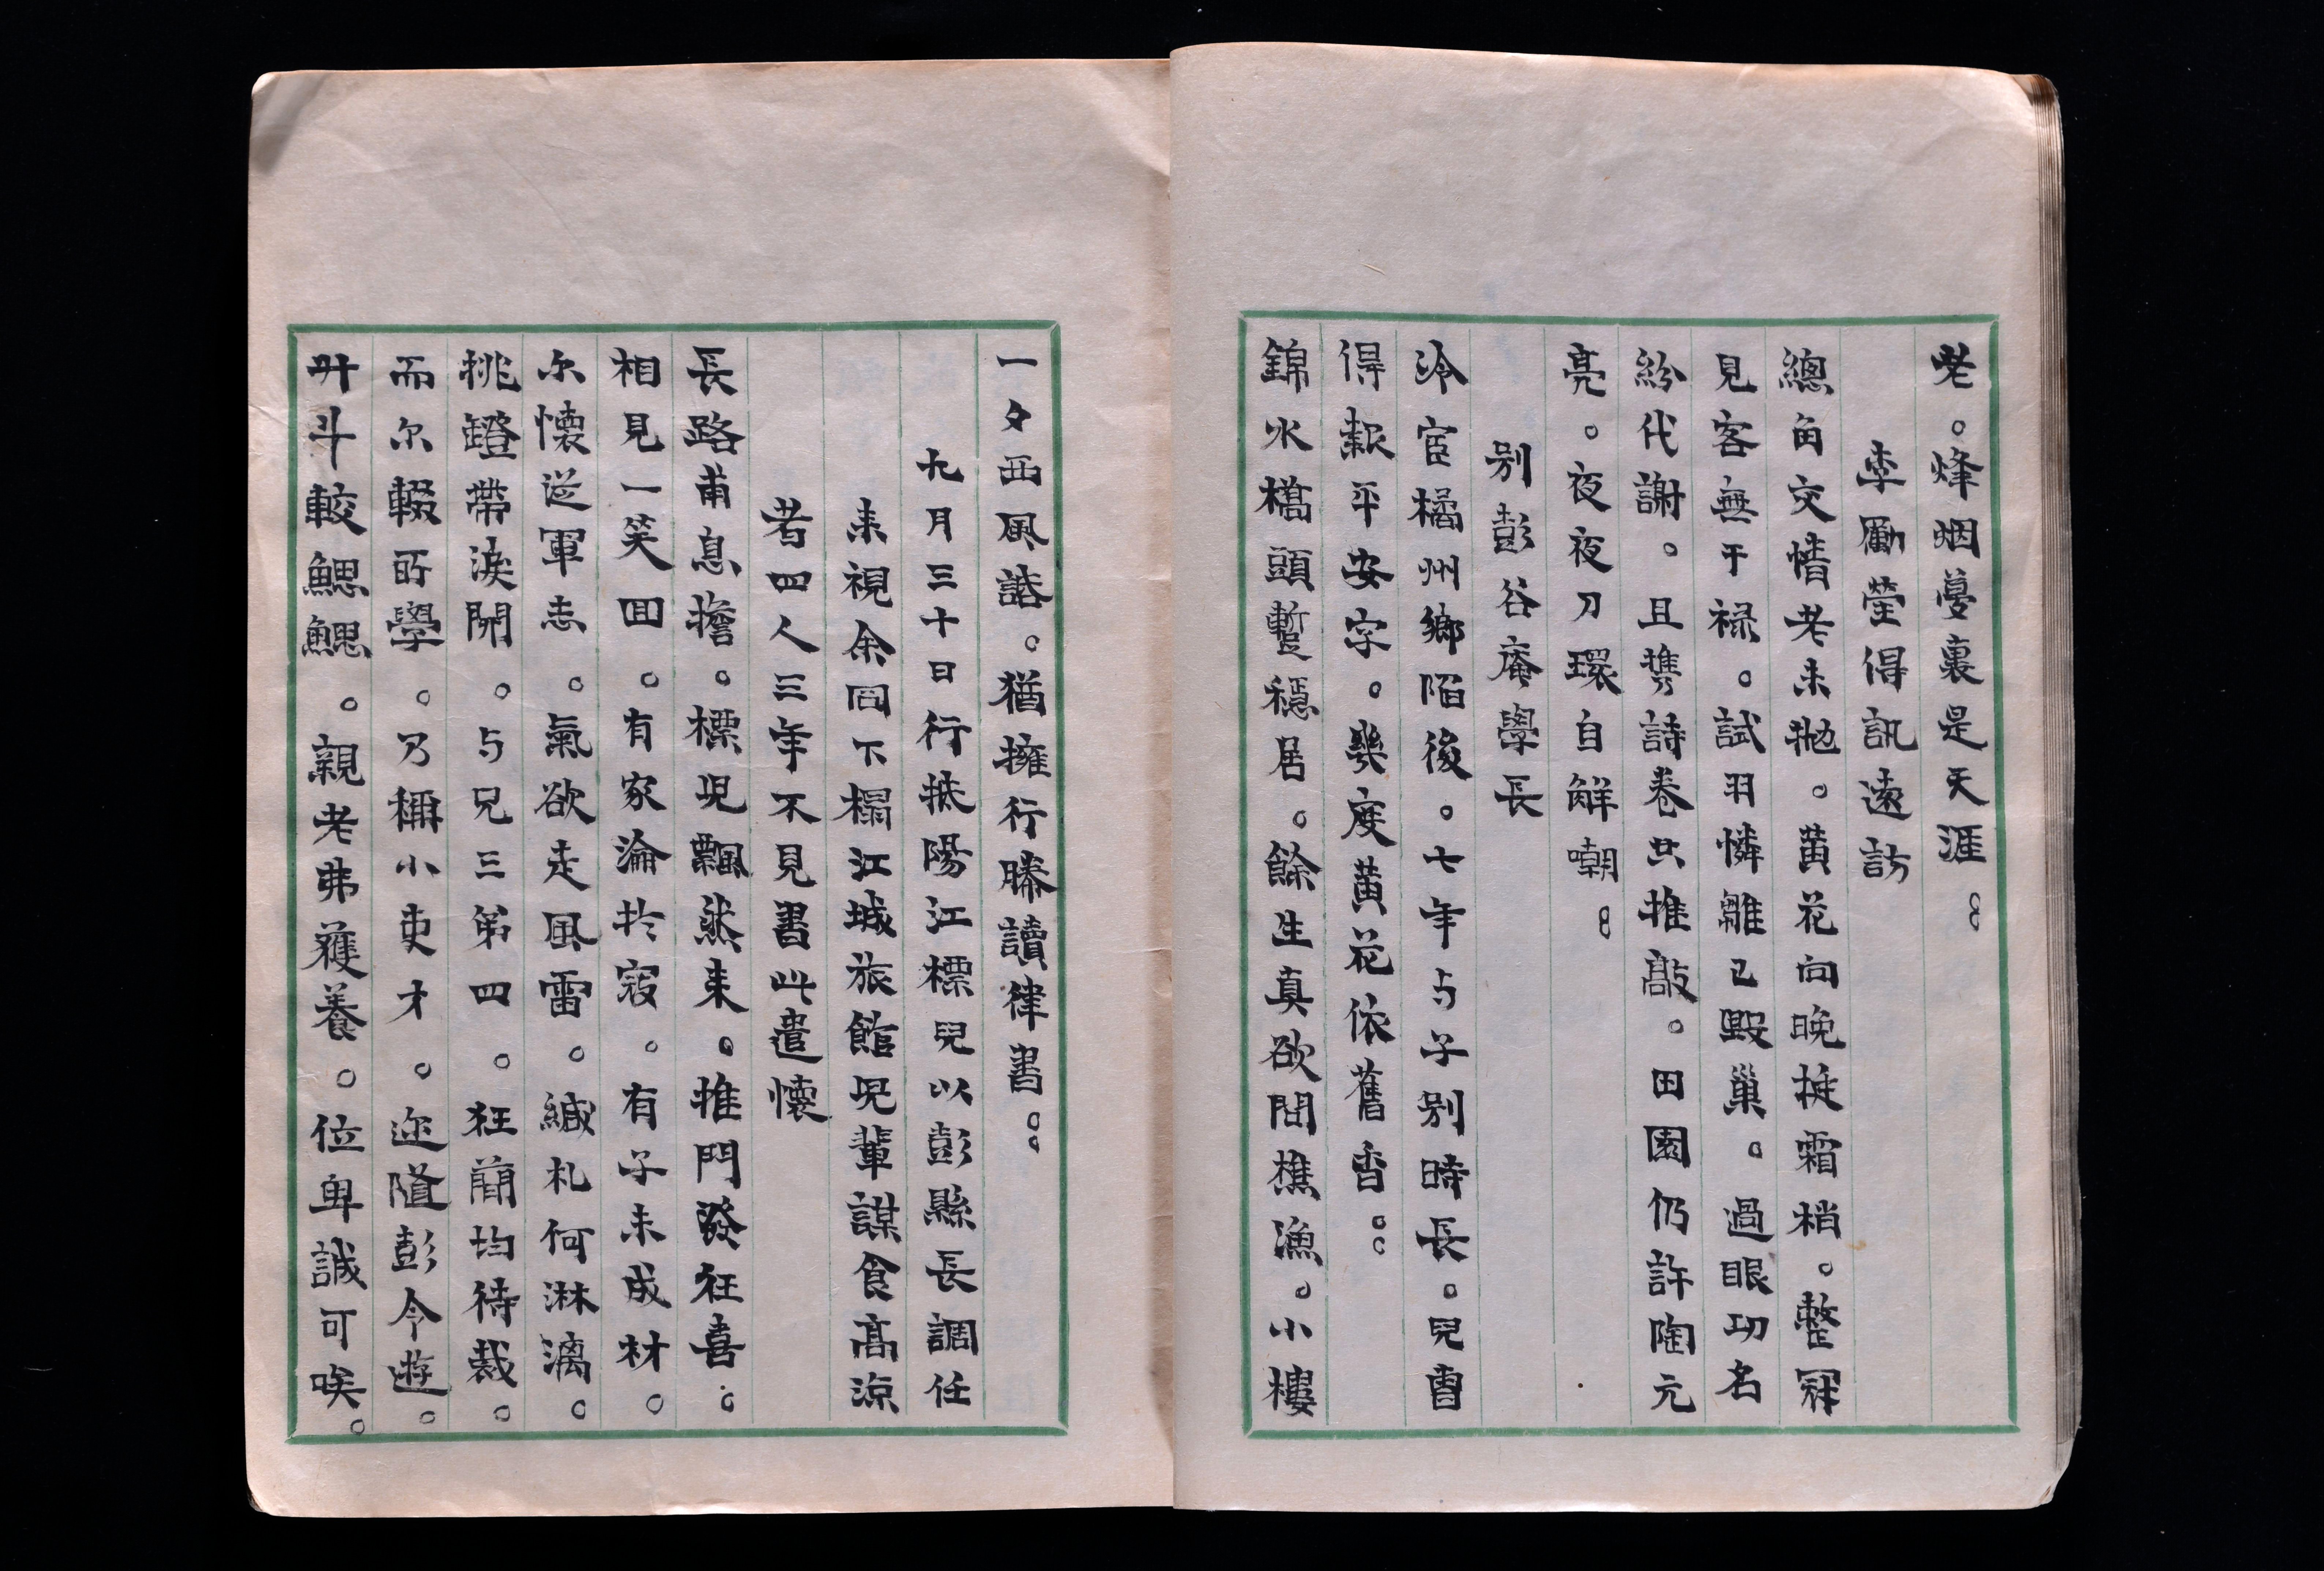 老。烽烟蔓裏是天涯。。
李勵莹得訊遠訪
總角交情老来拋。黃花向晚挺霜梢。整冠
見客無干祿。試羽憐雛已毀巢。過眼功名
紛代謝。且携詩卷共推敲。田園仍許陶元
亮。夜夜刀環自解嘲。。
别彭谷庵學長
冷宦橘州鄉陌後。七年与子别時長。兒曹
得報平安字。幾度黃花依舊香。。
錦水橋頭暫穩居。餘生真欲問樵漁。小樓
一夕西風諮。猶擁行縢讀律書。。
九月三十日行抵陽江標兒以彭縣長調任
来視余同下榻江城旅館兒輩謀食高涼
者四人三年不見書此遣懷
長路甫息擔。標兒飄然来。推門發狂喜。
相見一笑囬。有家淪扵寇。有子未成材。
尔懷從軍志。氣欲走風雷。緘札何淋漓。
挑鐙帶淚開。与兄三第四。狂簡均待裁。
而尔輟所學。乃稱小吏才。迩隨彭令遊。
升斗較鰓鰓。親老弗獲養。位卑誠可唉。